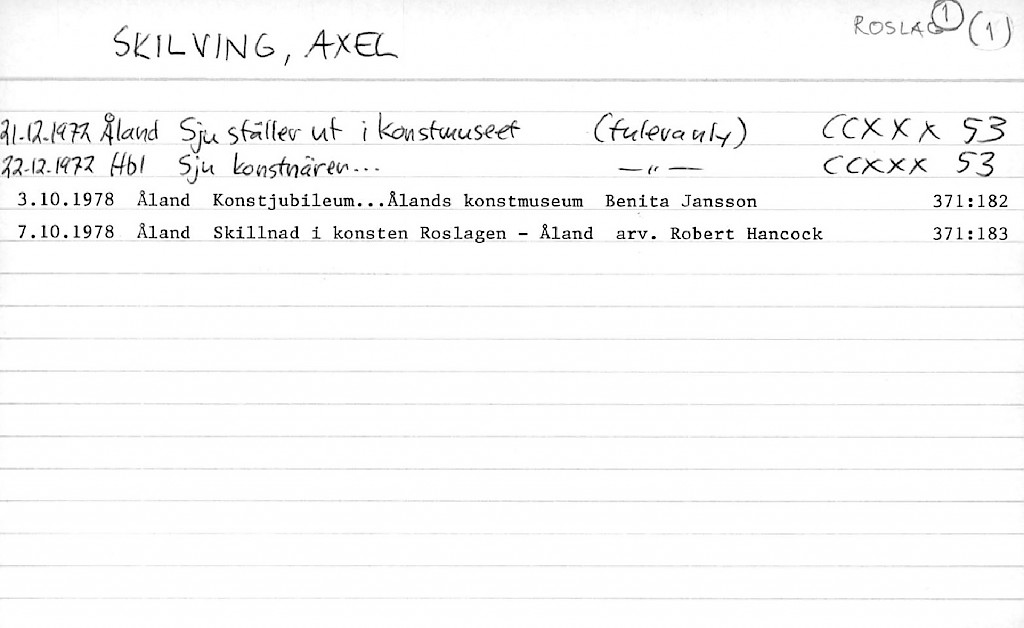 SKILVING, AXEL
ROSLAG 1 (1)
21.12.1972 Åland Sju ställer ut i konstmuseet (tuleva nly) CCXXX 53
22.12.1972 Hbl Sju konstnärer... —〃— CCXXX 53
3.10.1978 Åland Konstjubileum...Ålands konstmuseum Benita Jansson 371:182
7.10.1978 Åland Skillnad i konsten Roslagen - Åland arv. Robert Hancock 371:183